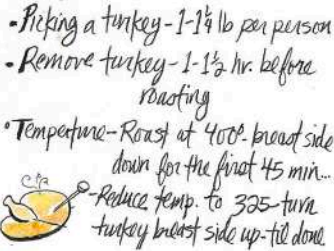 • Picking a turkey - 1-1¼ lb per person
• Remove turkey - 1-1½ hr. before
roasting
• Temperture - Roast at 400° breast side
down for the first 45 min...
- Reduce temp. to 325 - turn
turkey breast side up - til done